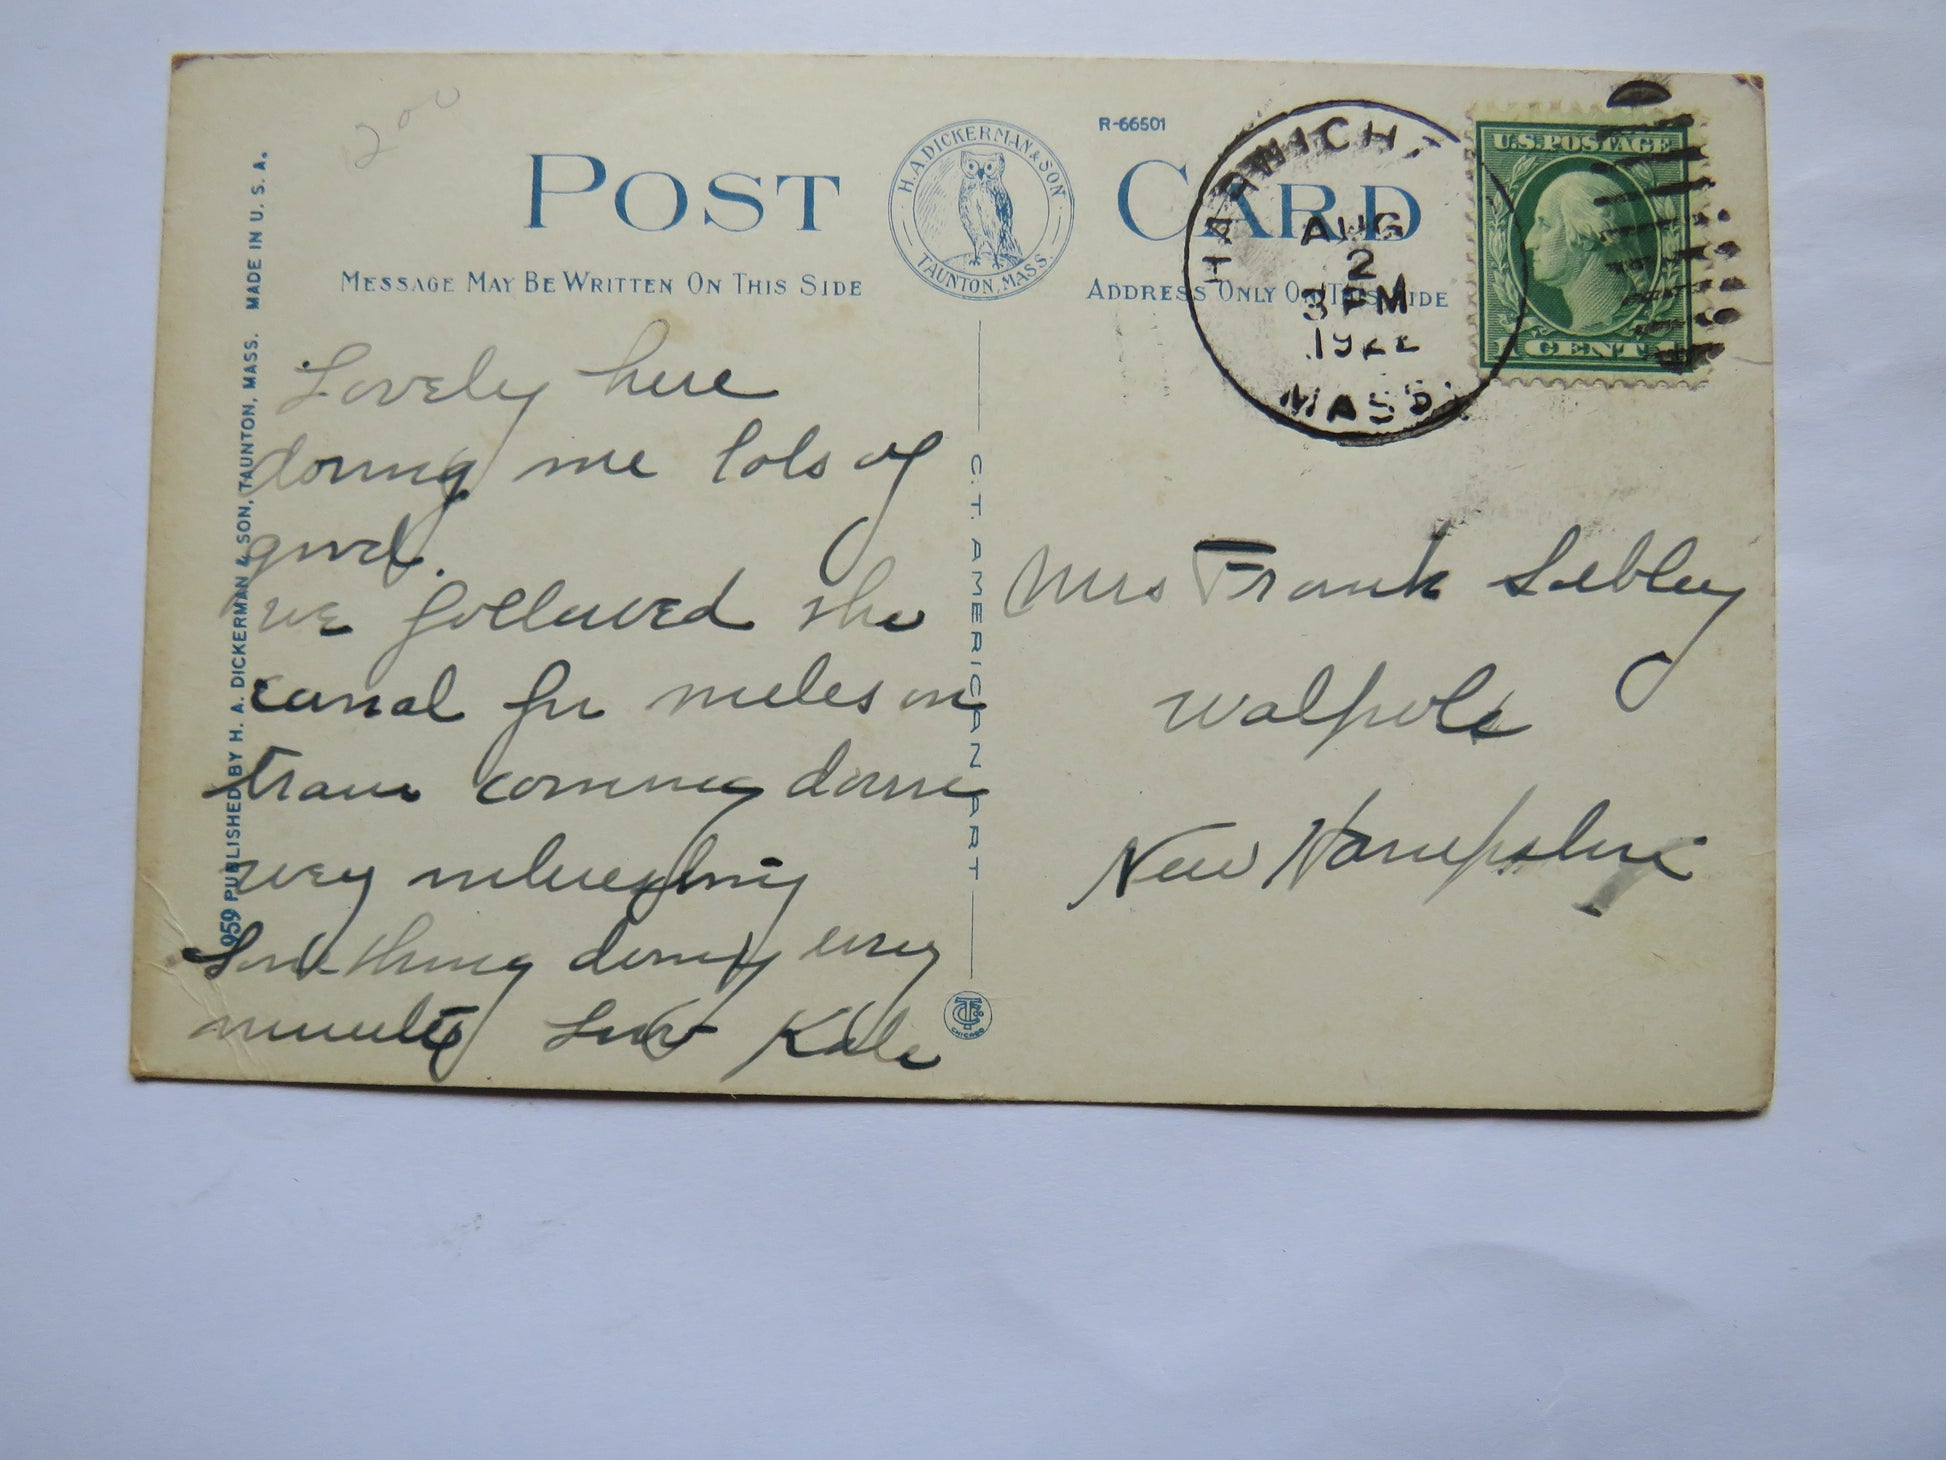 200
POST CARD
H. A. DICKERMAN & SON
TAUNTON, MASS.
R-66501
MESSAGE MAY BE WRITTEN ON THIS SIDE
ADDRESS ONLY ON THIS SIDE
HARWICH
AUG
2
3 PM
1922
MASS.
U.S. POSTAGE
1 CENT 1
Lovely here
doing me lots of
good.
we followed the
canal for miles on
train coming down
very interesting
Something doing every
minute Love Kate
Mrs Frank Sibley
Walpole
New Hampshire
959 PUBLISHED BY H. A. DICKERMAN & SON, TAUNTON, MASS. MADE IN U. S. A.
C. T. AMERICAN ART
CHICAGO